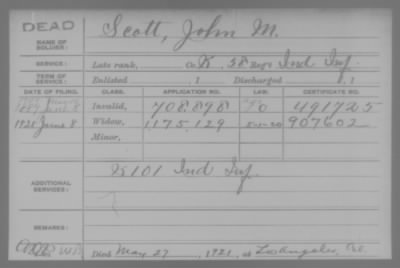 DEAD
NAME OF SOLDIER: Scott, John M.
SERVICE: Late rank, Co. K, 38 Reg't Ind Inf.
TERM OF SERVICE: Enlisted , 1 Discharged , 1
DATE OF FILING. CLASS. APPLICATION NO. LAW. CERTIFICATE NO.
Invalid, 708,898 491725
1921 June 8 Widow, 1,175,129 5-1-20 907602
Minor,
ADDITIONAL SERVICES: K 101 Ind Inf.
REMARKS:
Died May 27, 1921, at Los Angeles, Cal.